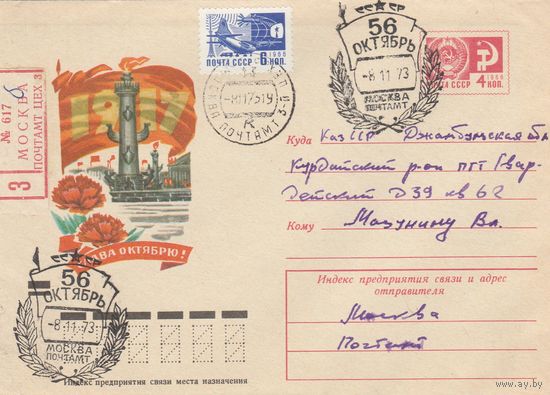 ПОЧТА СССР 1966
6 КОП.
СССР
56
ОКТЯБРЬ
-8.11.73
МОСКВА
ПОЧТАМТ
1966
ПОЧТА СССР 4 КОП.
№ 617
МОСКВА
ПОЧТАМТ ЦЕХ 3
З
1917
МОСКВА ПОЧТАМТ
Куда КазССР Джамбульская обл
Курдайский р-он пгт Гвар-
дейский Д39 кв 62
Кому Мазунину Вл.
СЛАВА ОКТЯБРЮ!
Индекс предприятия связи и адрес
отправителя
Москва
Почтамт
СССР
56
ОКТЯБРЬ
-8.11.73
МОСКВА
ПОЧТАМТ
Индекс предприятия связи места назначения
www.ay.by